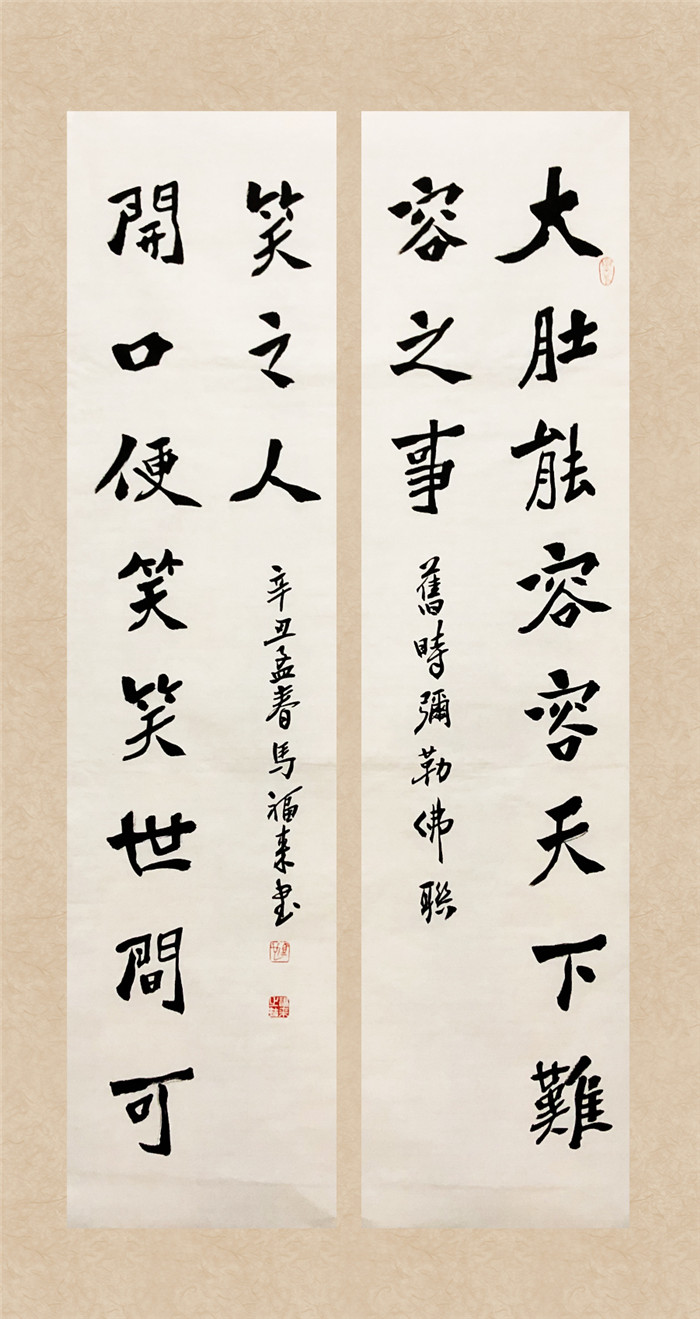 大肚能容容天下難
容之事
舊時彌勒佛聯
開口便笑笑世間可
笑之人
辛丑孟春馬福来書